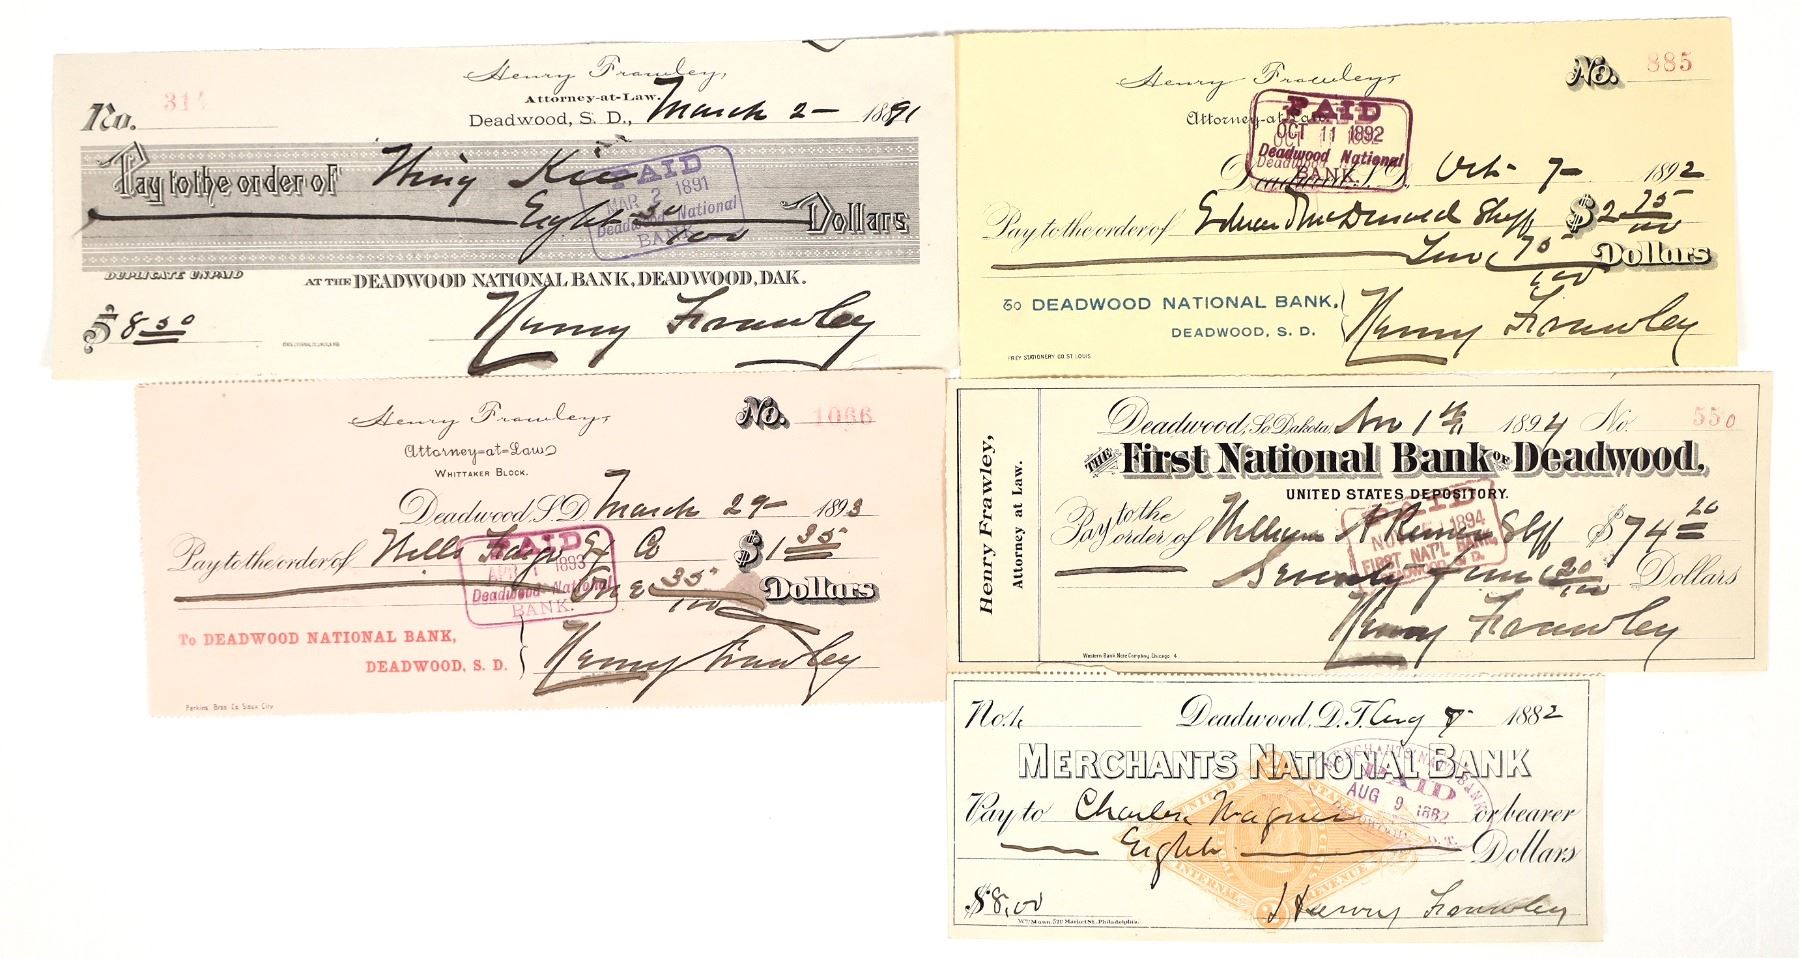 Henry Frawley,
Attorney-at-Law.
No. 314
Deadwood, S. D., March 2- 1891
Pay to the order of Wing Kee
Eight 50/100 Dollars
PAID
MAR 2 1891
Deadwood National
BANK
DUPLICATE UNPAID
AT THE DEADWOOD NATIONAL BANK, DEADWOOD, DAK.
$ 8 50
Henry Frawley
Henry Frawley,
No. 885
Attorney-at-Law
PAID
OCT 11 1892
Deadwood National
BANK
Oct 7- 1892
Pay to the order of Edward McDonald Shff $2 75/100
Two 75/100 Dollars
To DEADWOOD NATIONAL BANK,
DEADWOOD, S. D.
Henry Frawley
FREY STATIONERY CO ST LOUIS
Henry Frawley,
No. 1066
Attorney-at-Law
WHITTAKER BLOCK.
Deadwood, S. D. March 29- 1893
Pay to the order of Wells Fargo Ex Co $1 35
One 35/100 Dollars
PAID
APR 1 1893
Deadwood National
BANK.
To DEADWOOD NATIONAL BANK,
DEADWOOD, S. D.
Henry Frawley
Perkins Bros Co Sioux City
Henry Frawley,
Attorney at Law.
Deadwood, So Dakota, Nov 14, 1894 No. 550
THE First National Bank OF Deadwood,
UNITED STATES DEPOSITORY.
Pay to the order of William A Remer Shff $74 20
Seventy four 20/100 Dollars
PAID
1894
FIRST NAT'L BANK,
DEADWOOD S. D.
Henry Frawley
Western Bank Note Company, Chicago. 4
No. 1 Deadwood, D. T. Aug 8 1882
MERCHANTS NATIONAL BANK
Pay to Charles Wagner or bearer
Eight Dollars
MERCHANTS NAT'L BANK
PAID
AUG 9 1882
UNITED STATES
INTERNAL REVENUE
2
$8.00
Henry Frawley
Wm Mann, 529 Market St. Philadelphia.